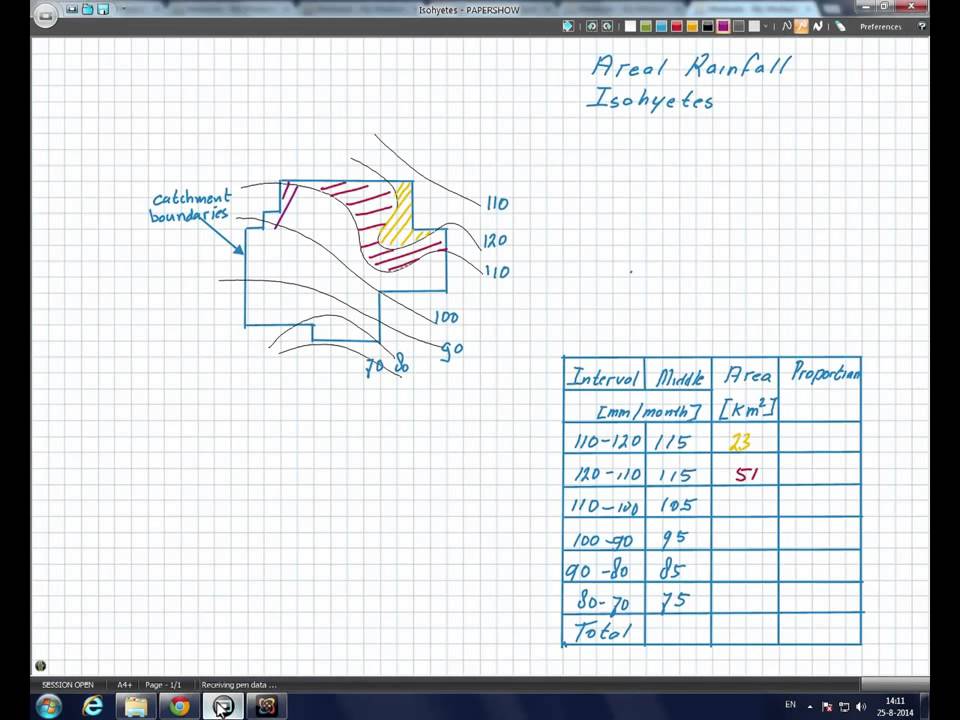 Isohyetes - PAPERSHOW
Preferences ?
Areal Rainfall
Isohyetes
catchment
boundaries
110
120
110
100
90
70 80
Interval Middle Area Proportion
[mm/month] [Km²]
110-120 115 23
120-110 115 51
110-100 105
100-90 95
90-80 85
80-70 75
Total
SESSION OPEN A4+ Page - 1/1 Receiving pen data ...
EN 14:11
25-8-2014